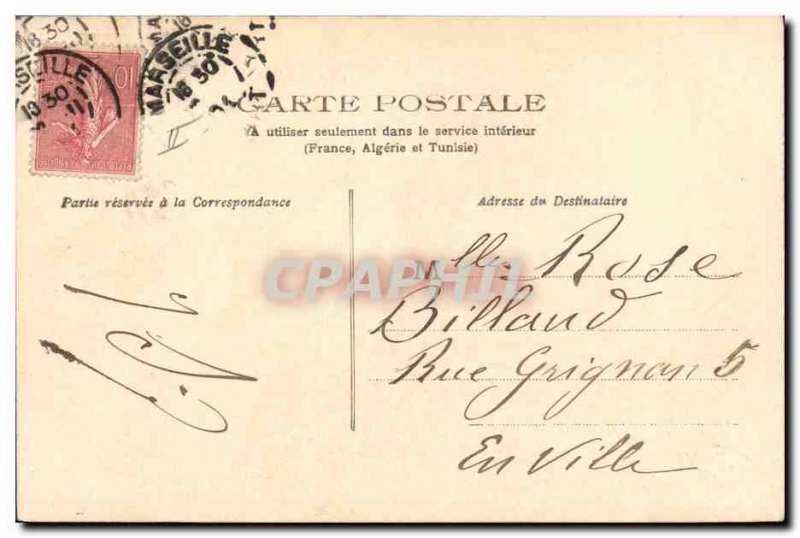 MARSEILLE
18 30
SEILLE
18 30
11
MARSEILLE
18 30
10
II
CARTE POSTALE
A utiliser seulement dans le service intérieur
(France, Algérie et Tunisie)
Partie réservée à la Correspondance
Adresse du Destinataire
Mlle Rose
Billaud
Rue Grignan 5
En Ville
CPAPHIL